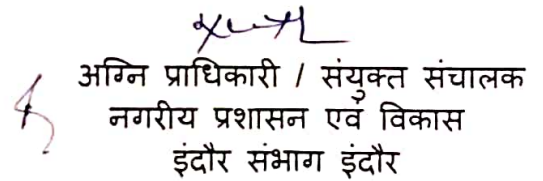 अग्नि प्राधिकारी / संयुक्त संचालक
नगरीय प्रशासन एवं विकास
इंदौर संभाग इंदौर